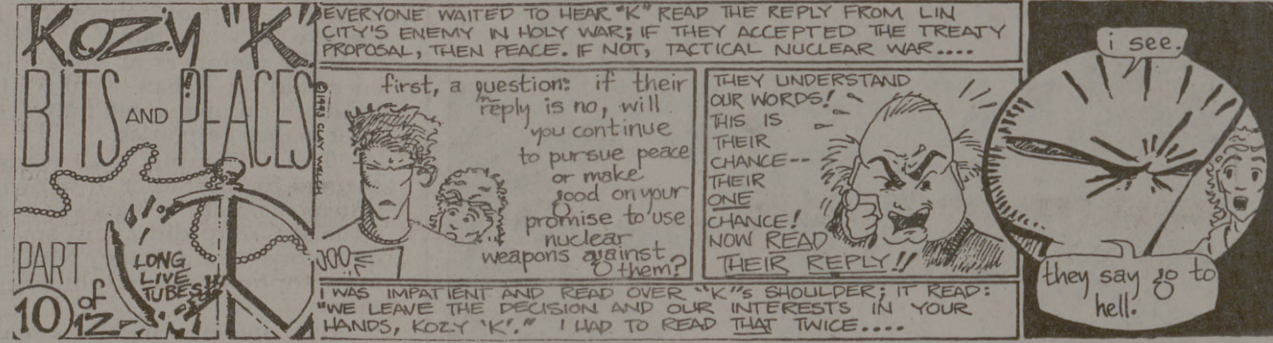 KOZY "K"
BITS AND PEACES
LONG
LIVE
TUBES!!
PART
10 of
12
©1983 CLAY WELCH
EVERYONE WAITED TO HEAR "K" READ THE REPLY FROM LIN
CITY'S ENEMY IN HOLY WAR; IF THEY ACCEPTED THE TREATY
PROPOSAL, THEN PEACE. IF NOT, TACTICAL NUCLEAR WAR....
first, a question: if their
reply is no, will
you continue
to pursue peace
or make
good on your
promise to use
nuclear
weapons against
them?
THEY UNDERSTAND
OUR WORDS!
THIS IS
THEIR
CHANCE--
THEIR
ONE
CHANCE!
NOW READ
THEIR REPLY!!
I WAS IMPATIENT AND READ OVER "K"s SHOULDER; IT READ:
"WE LEAVE THE DECISION AND OUR INTERESTS IN YOUR
HANDS, KOZY 'K'." I HAD TO READ THAT TWICE....
i see.
they say go to
hell.